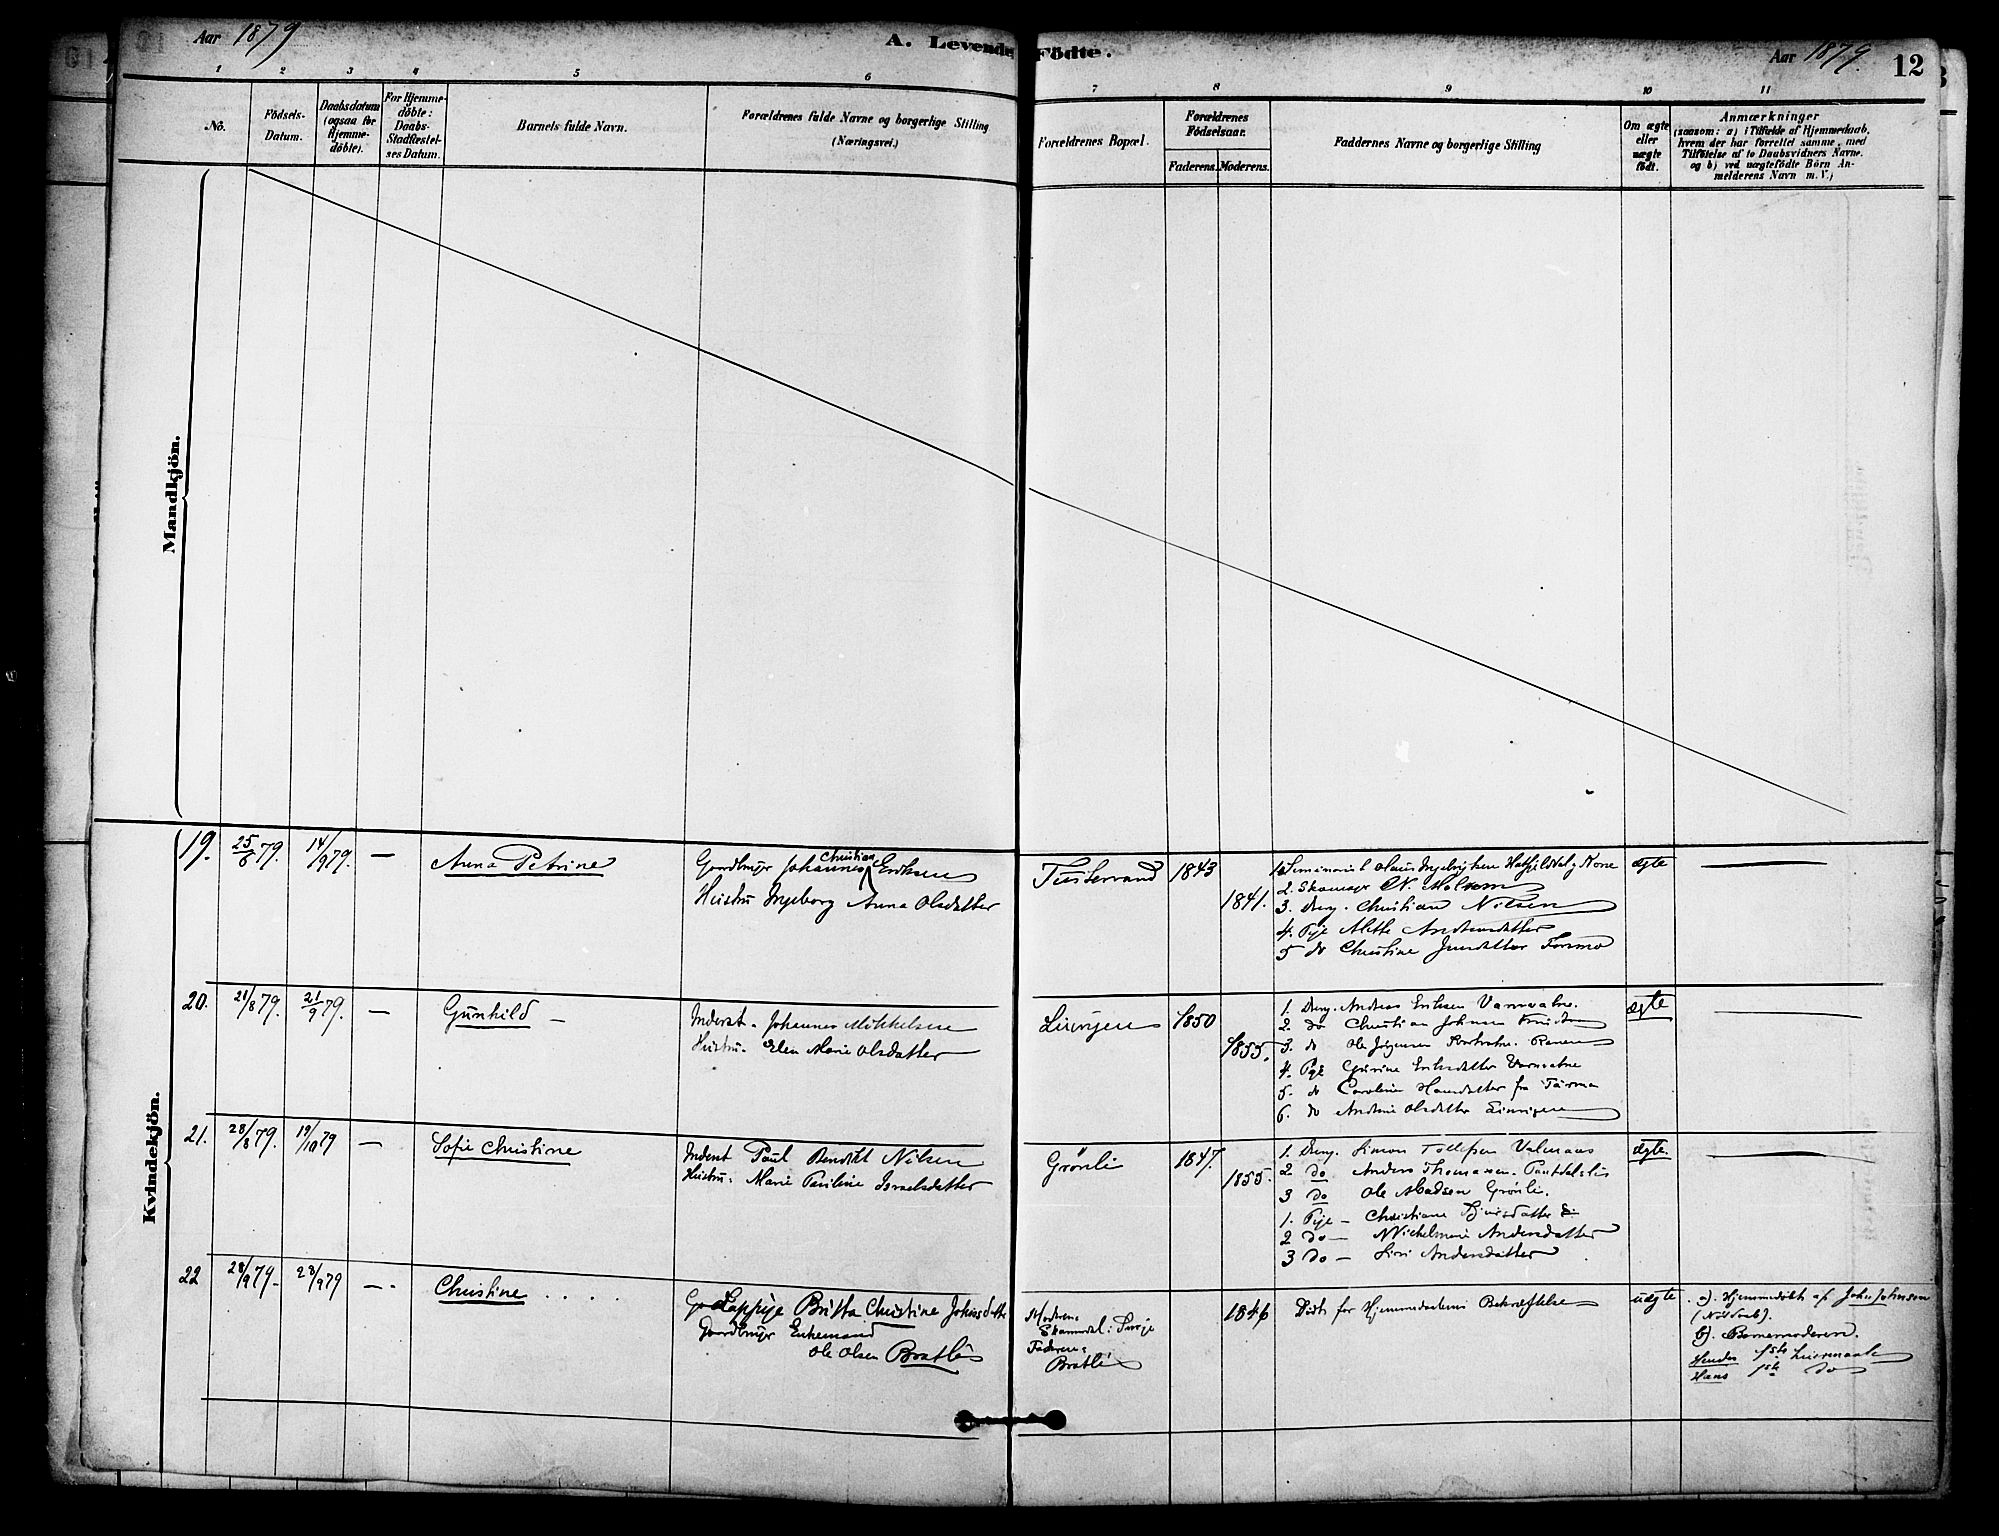 Aar 1879
A. Levende Födte.
Aar 1879.
12
1 2 3 4 5 6 7 8 9 10 11
No.
Födsels-
Datum.
Daabsdatum
(ogsaa för
Hjemme-
döbte).
For Hjemme-
döbte:
Daabs-
Stadfæstel-
ses Datum.
Barnets fulde Navn.
Forældrenes fulde Navne og borgerlige Stilling
(Næringsvei.)
Forældrenes Bopæl.
Forældrenes
Födselsaar.
Faderens. Moderens.
Faddernes Navne og borgerlige Stilling
Om ægte
eller
uægte
födt.
Anmærkninger
(saasom: a) i Tilfælde af Hjemmedaab,
hvem der har forrettet samme, med
Tilföielse af to Daabsvidners Navne.
og b) ved uægtefödte Börn An-
melderens Navn m. V.)
Mandkjön.
Kvindekjön.
19.
25/6 79.
14/9 79.
—
Anna Petrine
Gaardbruger Johannes Christian Eriksen
Hustru Ingeborg Anna Olsdatter
Tustervand
1843
1841.
1. Seminarist Olaus Ingebrigtsen Hatfjelddal og Kone
2. N. Molum
3. Dreng. Christian Nilsen
4. Pige Alette Andersdatter
5 do Christine Jensdatter Forsmo
ægte
20.
21/8 79.
21/9 79.
—
Gunhild —
Inderst. Johannes Mikkelsen
Hustru. Elen Marie Olsdatter
1850
1855.
1. Dreng. Andreas Eriksen Varnvatne.
2. do Christian Johnsen
3. do Ole Jörgensen Ranen
4. Pige Gurine Eriksdatter Varnvatne
5. do Caroline Hansdatter fra Tärna
6. do Andrine Olsdatter
ægte
21.
28/8 79.
19/10 79
—
Sofie Christine
Inderst Paul Benedikt Nilsen
Hustru: Marie Pauline Israelsdatter
Grönli
1847.
1855.
1. Dreng. Simon Tollefsen
2. do Anders Thomassen.
3 do Ole Madsen Grönli.
1. Pige — Christiane
2 do — Andersdatter
3 do — Siri Andersdatter
ægte.
22
28/9 79.
23/9 79
—
Christine . . . .
Lappige Britta Christine Johnsdatter
Gaardbruger Enkemand
Ole Olsen Bratli
Moderens
Faderens
Bratli
1846
Dödt før Hjemmedaabens Bekræftelse
uægte
a). Hjemmedöbt af John Johnsen
(Nöddaab).
b). Barnemoderen.
Hendes 1ste Leiermaal
Hans 1ste do